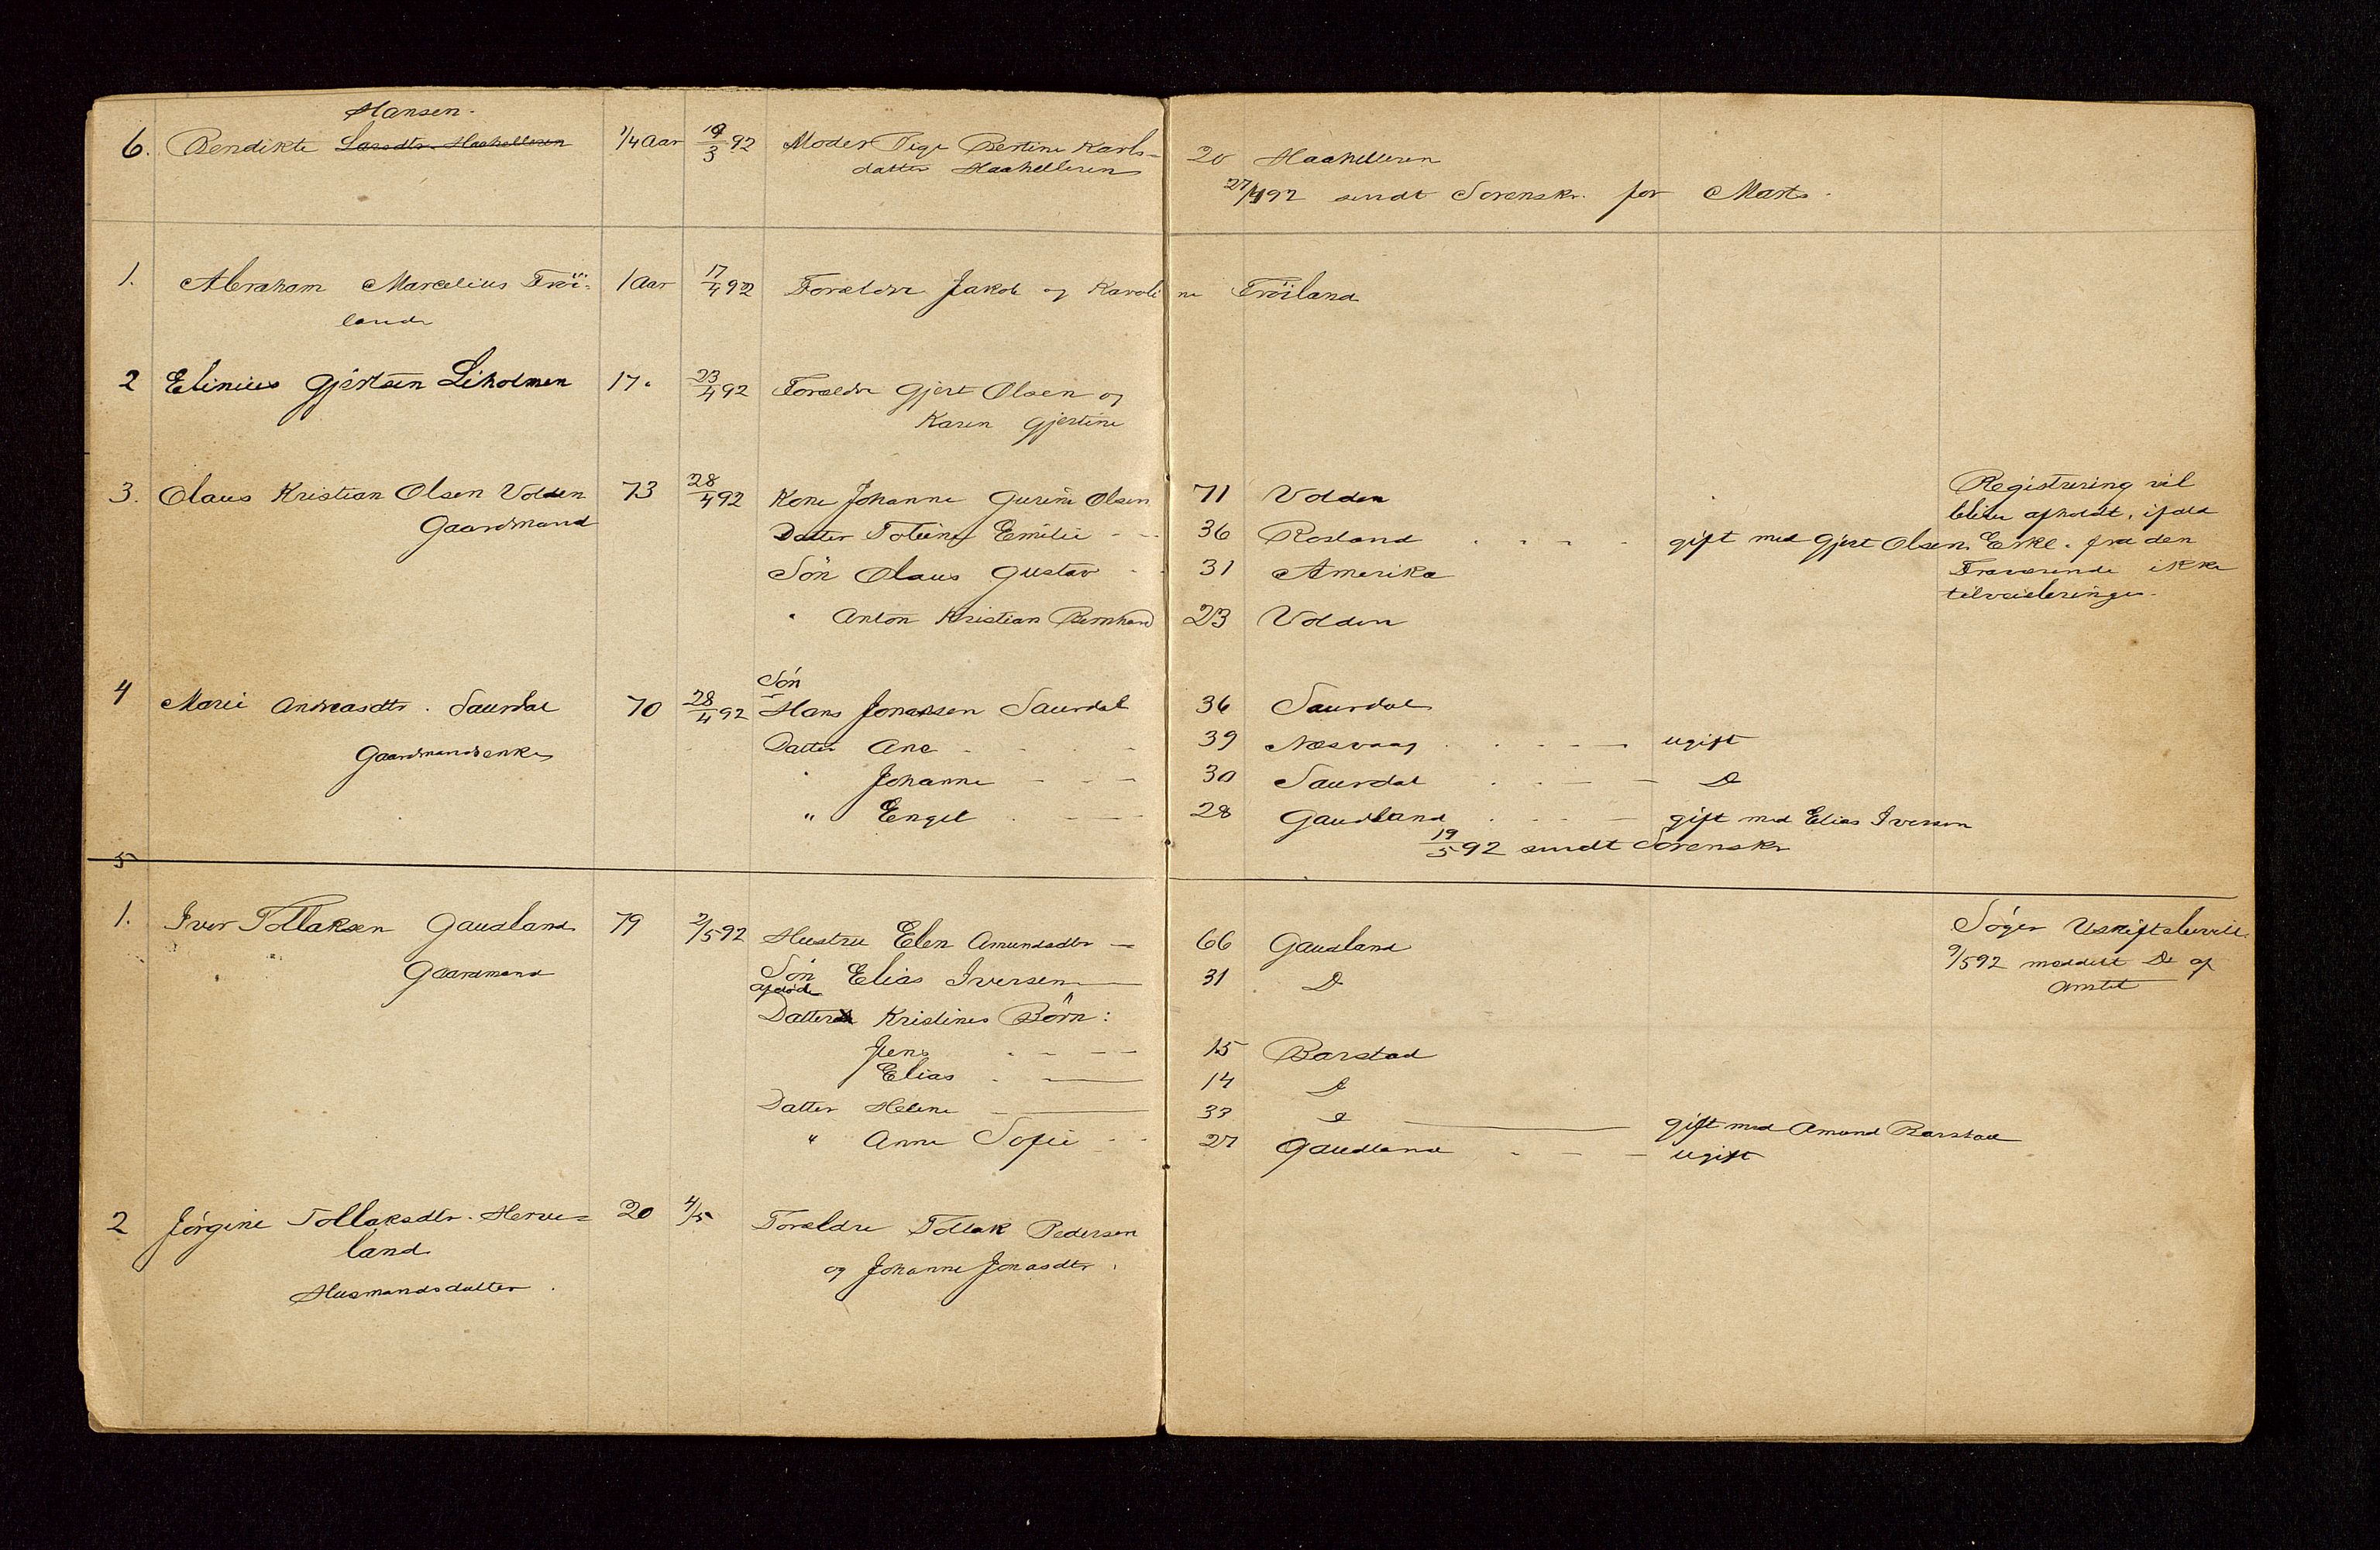 Hansen.
6. Bendikte Larsdtr. Haahelleren 1/4 Aar 19/3 92 Moder Pige Bertine Karls- 20 Haahelleren
datter Haahelleren
27/4 92 sendt Sorenskr. for Marts.
1. Abraham Marcelius Tröi- 1 Aar 17/4 92 Forældre Jakob og Karoline Tröiland
land
2 Elinius Gjertsen Liholmen 17. 23/4 92 Forældre Gjert Olsen og
Karen Gjertine
3. Olaus Kristian Olsen Volden 73 28/4 92 Kone Johanne Gurine Olsen 71 Volden Registrering vil
Gaardmand Datter Tobine Emilie - - 36 Rosland . - - . gift med Gjert Olsen Eske. fra den
blive afholdt, ifald
Sön Olaus Gustav - - 31 Amerika Fraværende ikke
" Anton Kristian Bernhard 23 Volden
4 Marie Andreasdtr. Saurdal 70 28/4 92 Sön
Hans Jonassen Saurdal 36 Saurdal
Gaardmandsenke Datter Ane - - - 39 Næsvaag . . - - ugift
" Johanne - - - 30 Saurdal . - - Do
" Engel . - - 28 Gaudland . - - gift med Elias Iversen
19/5 92 sendt Sorenskr
5
1. Iver Tollaksen Gaudland 79 2/5 92 Hustru Elen Amundsdtr - 66 Gaudland Søger Uskiftebevill.
Gaardmand Sön Elias Iversen 31 Do 9/5 92 meddelt Do af
Amtet
afdøde
Datter Kristines Börn:
Jens . - - 15 Barstad
Elias . - 14 Do
Datter Helene - 33 Do - gift med Amund Barstad
" Anne Sofie - - 27 Gaudland - - - ugift
2 Jörgine Tollaksdtr. Herve= 20 4/5 Forældre Tollak Pedersen
land og Johanne Jonasdtr.
Husmandsdatter.